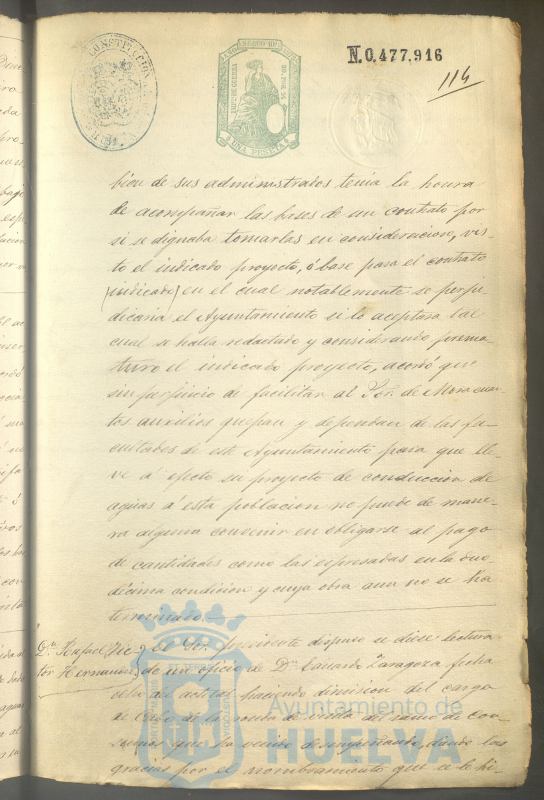 N.0.477,916
114
CONSTITUCION
UNA PESETA
bien de sus administrados tenia la honra
de acompañar las bases de un contrato por
si se dignaba tomarlas en consideracion, vis-
to el indicado proyecto, ó base para el contrato
(indicado) en el cual notablemente se perju-
dicaria el Ayuntamiento si lo aceptara tal
cual se halla redactado y considerando prema-
turo el indicado proyecto, acordó que
sin perjuicio de facilitar al Sor. de Mora cuan-
tos auxilios quepan y dependan de las fa-
cultades de este Ayuntamiento para que lle-
ve á efecto su proyecto de conduccion de
aguas á esta poblacion no puede de mane-
ra alguna convenir en obligarse al pago
de cantidades como las espresadas en la duo-
décima condicion y cuya obra aun no se ha
terminado.
Dn. Rafael
tor Hernandez
El Sor. Presidente dispuso se diese lectura
de un oficio de Dn. Eduardo Zaragoza fecha
ocho del actual haciendo dimision del cargo
de la ronda de visita del ramo de Con-
sumos que ha venido desempeñando, dando las
gracias por el nombramiento que se le hi-
Ayuntamiento de
HUELVA